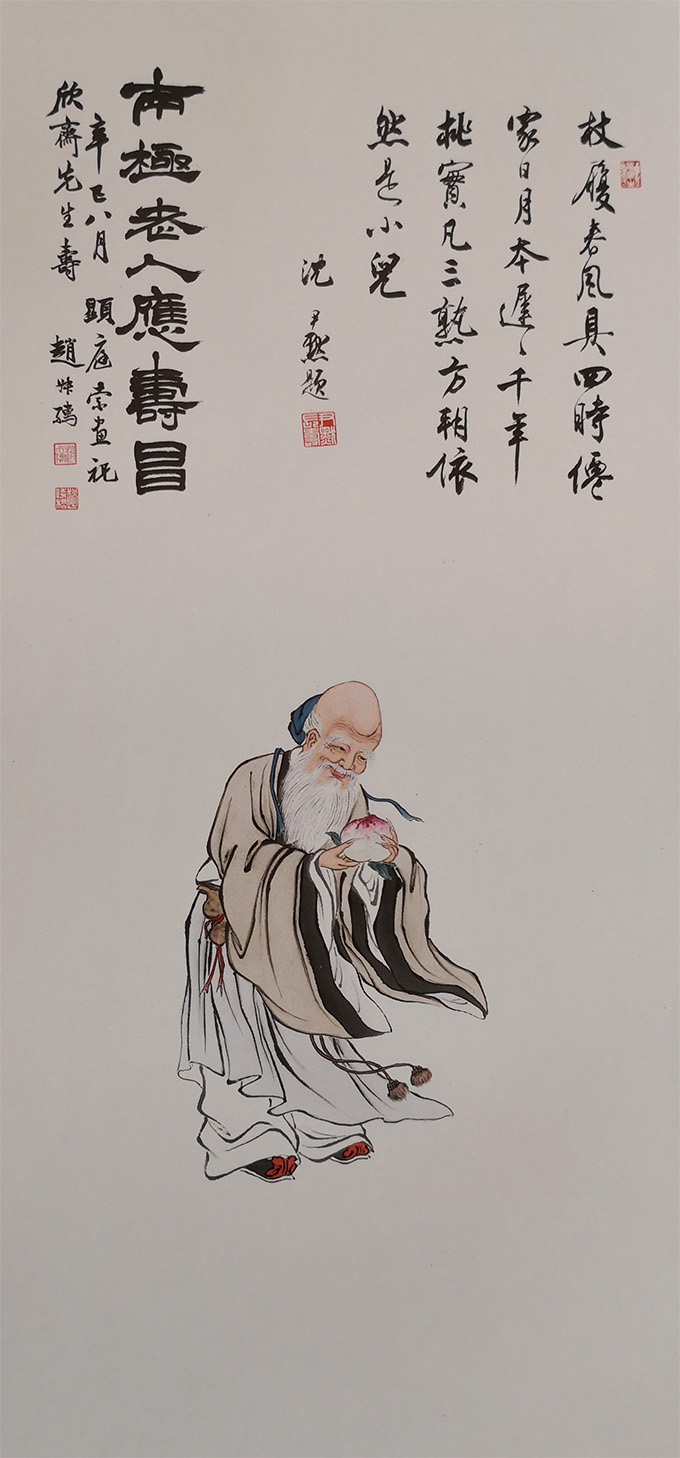 杖履春風具四時僊
家日月本遲〻千年
桃實凡三熟方朔依
然是小兒
沈尹默題
南極老人應壽昌
辛巳八月 顯庭索畫祝
欣齋先生壽 趙叔孺